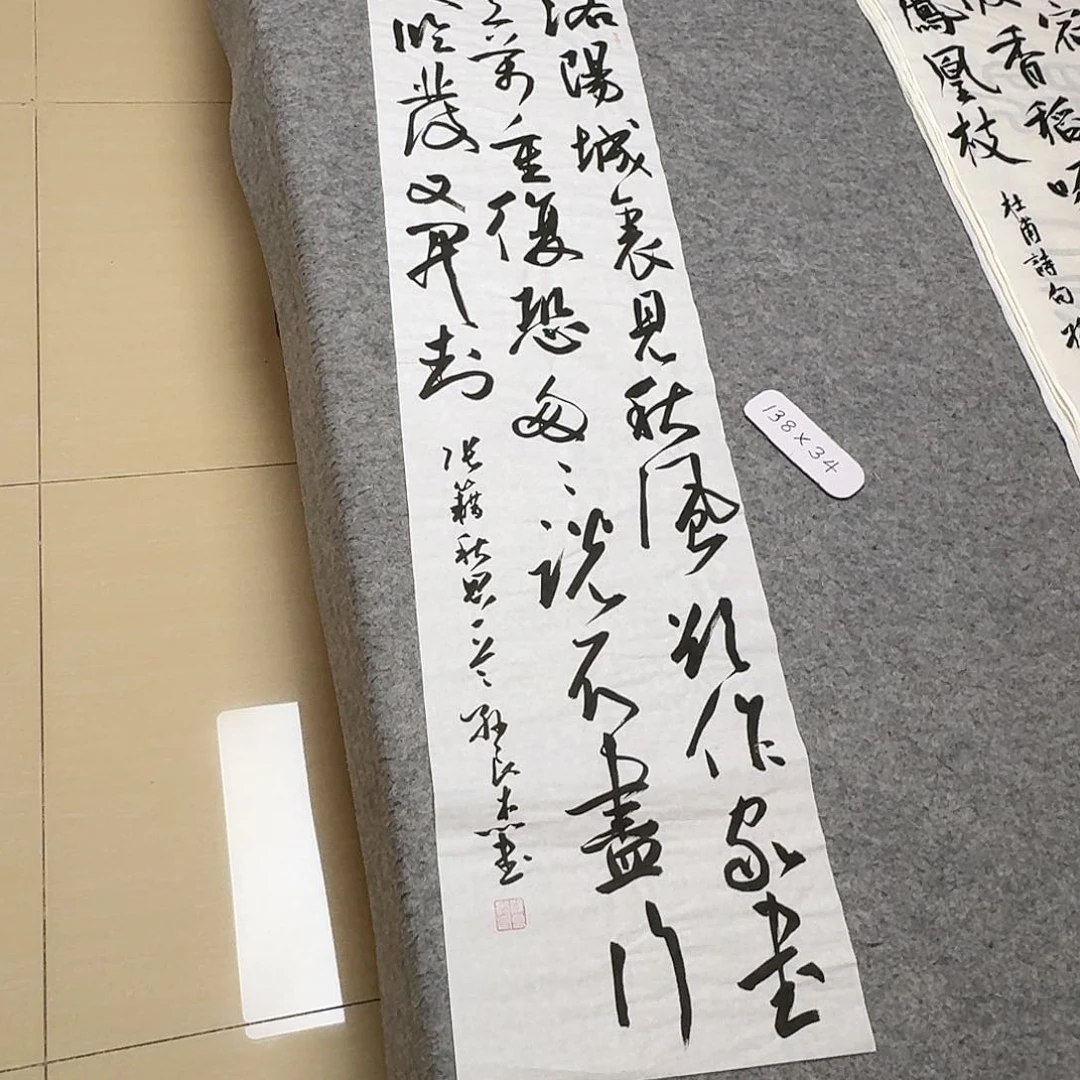 洛陽城裏見秋風欲作家書
萬重復恐匆〻說不盡行
臨發又開封
張籍秋思一首 孫良杰書
138×34
宿
香稻啄
鳳凰枝
杜甫詩句